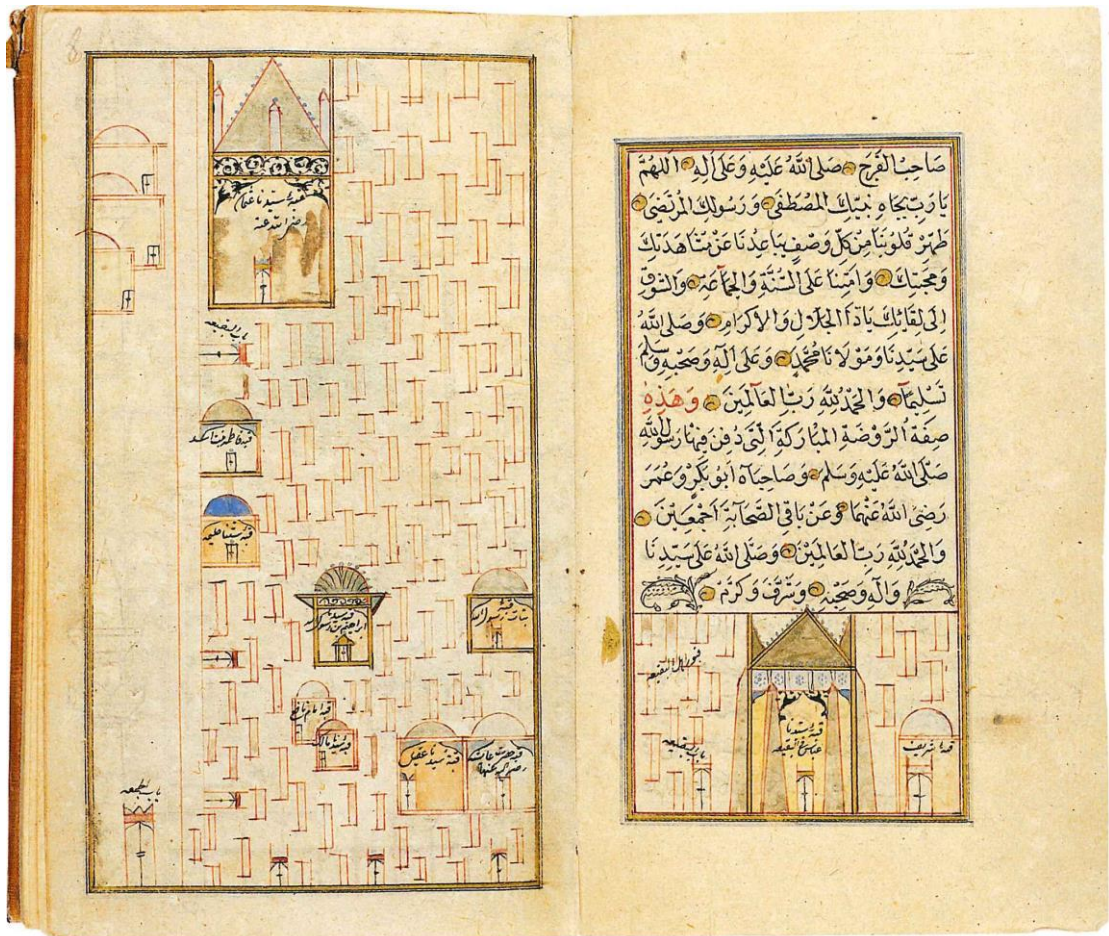 صَاحِبُ الْفَرَجِ صَلَّى اللَّهُ عَلَيْهِ وَعَلَى اٰلِهِ اَللّٰهُمَّ
يَا رَبِّ بِجَاهِ نَبِيِّكَ الْمُصْطَفَى وَرَسُولِكَ الْمُرْتَضَى
طَهِّرْ قُلُوبَنَا مِنْ كُلِّ وَصْفٍ يُبَاعِدُنَا عَنْ مُشَاهَدَتِكَ
وَمَحَبَّتِكَ وَاَمِتْنَا عَلَى السُّنَّةِ وَالْجَمَاعَةِ وَالشَّوْقِ
اِلَى لِقَائِكَ يَا ذَا الْجَلَالِ وَالْاِكْرَامِ وَصَلَّى اللَّهُ
عَلَى سَيِّدِنَا وَمَوْلَانَا مُحَمَّدٍ وَعَلَى اٰلِهِ وَصَحْبِهِ وَسَلَّمَ
تَسْلِيمًا وَالْحَمْدُ لِلَّهِ رَبِّ الْعَالَمِينَ وَهَذِهِ
صِفَةُ الرَّوْضَةِ الْمُبَارَكَةِ الَّتِي دُفِنَ فِيهَا رَسُولُ اللَّهِ
صَلَّى اللَّهُ عَلَيْهِ وَسَلَّمَ وَصَاحِبَاهُ اَبُو بَكْرٍ وَعُمَرَ
رَضِيَ اللَّهُ عَنْهُمَا وَعَنْ بَاقِي الصَّحَابَةِ اَجْمَعِينَ
وَالْحَمْدُ لِلَّهِ رَبِّ الْعَالَمِينَ وَصَلَّى اللَّهُ عَلَى سَيِّدِنَا
وَاٰلِهِ وَصَحْبِهِ وَشَرَّفَ وَكَرَّمَ
قبور اهل البقيعه
باب البقيعه
قبة سيدنا
عباس
قبة شريف
قبة سيدنا عثمان
رضى الله عنه
باب البقيعه
قبة فاطمه بنت اسد
قبة ستنا حليمه
قبة سيدنا
ابراهيم بن رسول الله
قبة
بنات رسول الله
قبة امام نافع
قبة سيدنا مالك
قبة سيدنا عقيل
قبة حضرت عائشه
رضى الله عنها
باب الجمعه